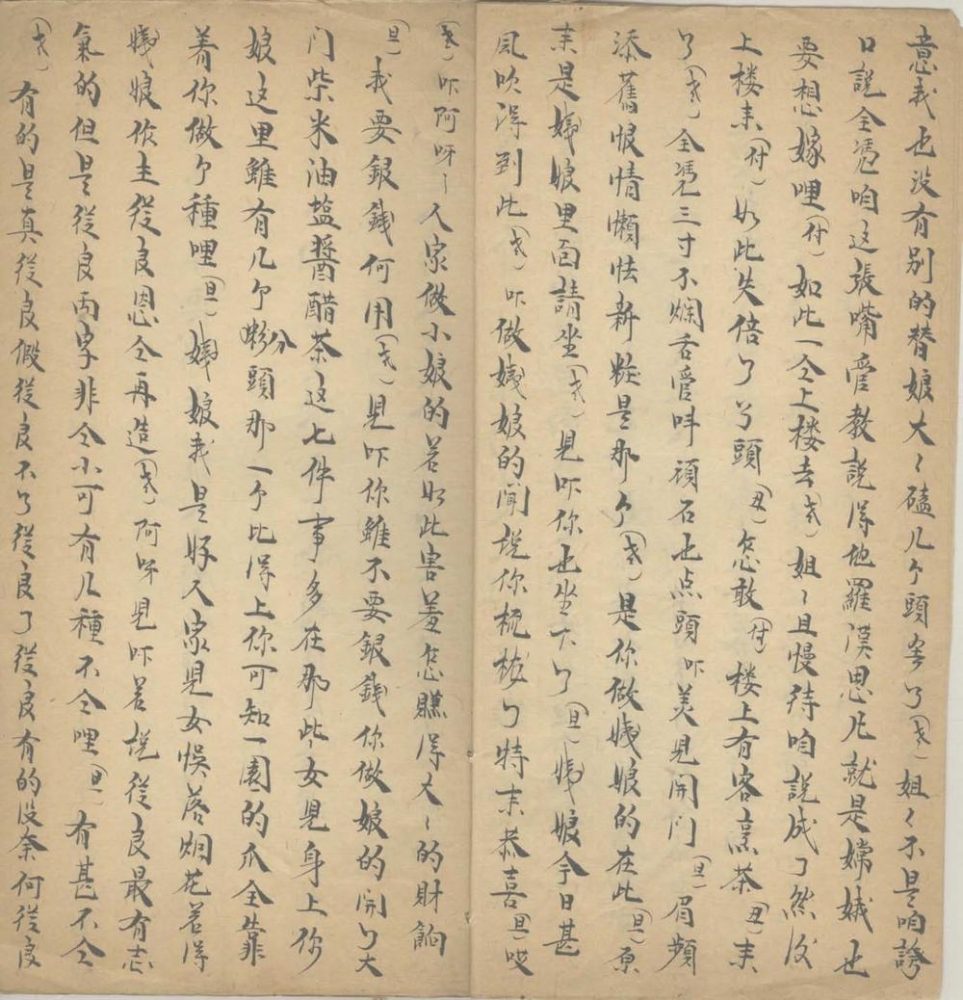 意我也没有别的替娘大〻磕几个頭罢了(老)姐〻不是咱誇
口說全凴咱这張嘴管教說得地羅漢思凡就是嫦娥也
要想嫁哩(付)如此一仝上楼去(老)姐〻且慢待咱說成了然後
上楼来(付)如此失倍了丫頭(丑)怎敢(付)楼上有客烹茶(丑)来
了(老)全凴三寸不爛舌管呌頑石也点頭吓美児開门(旦)眉頻
添舊恨情懶怯新粧是那个(老)是你做姨娘的在此(旦)原
来是姨娘里面請坐(老)児吓你也坐下了(旦)姨娘今日甚
風吹得到此(老)吓做姨娘的闻說你梳櫳了特来恭喜(旦)哎
(老)吓阿呀〻人家做小娘的若如此害羞怎賺得大〻的財餉
(旦)我要銀錢何用(老)児吓你雖不要銀錢你做娘的開了大
门柴米油盐醬醋茶这七件事多在那些女児身上你
娘这里雖有几个粉頭那一个比得上你可知一園的瓜全靠
着你做个種哩(旦)姨娘我是好人家児女悮落烟花若得
姨娘作主從良恩仝再造(老)阿呀児吓若說從良最有志
氣的但是從良两字非仝小可有几種不仝哩(旦)有甚不仝
(老)有的是真從良假從良不了從良了從良有的没奈何從良